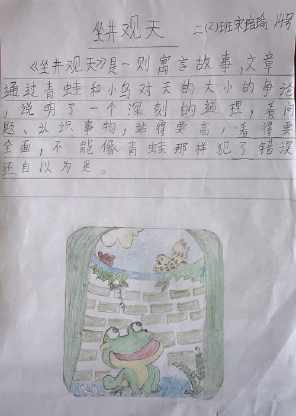 坐井观天
二(2)班
《坐井观天》是一则寓言故事,文章
通过青蛙和小鸟对天的大小的争论
,说明了一个深刻的道理,看问
题、认识事物,站得要高,看得要
全面,不能像青蛙那样犯了错误
还自以为是。